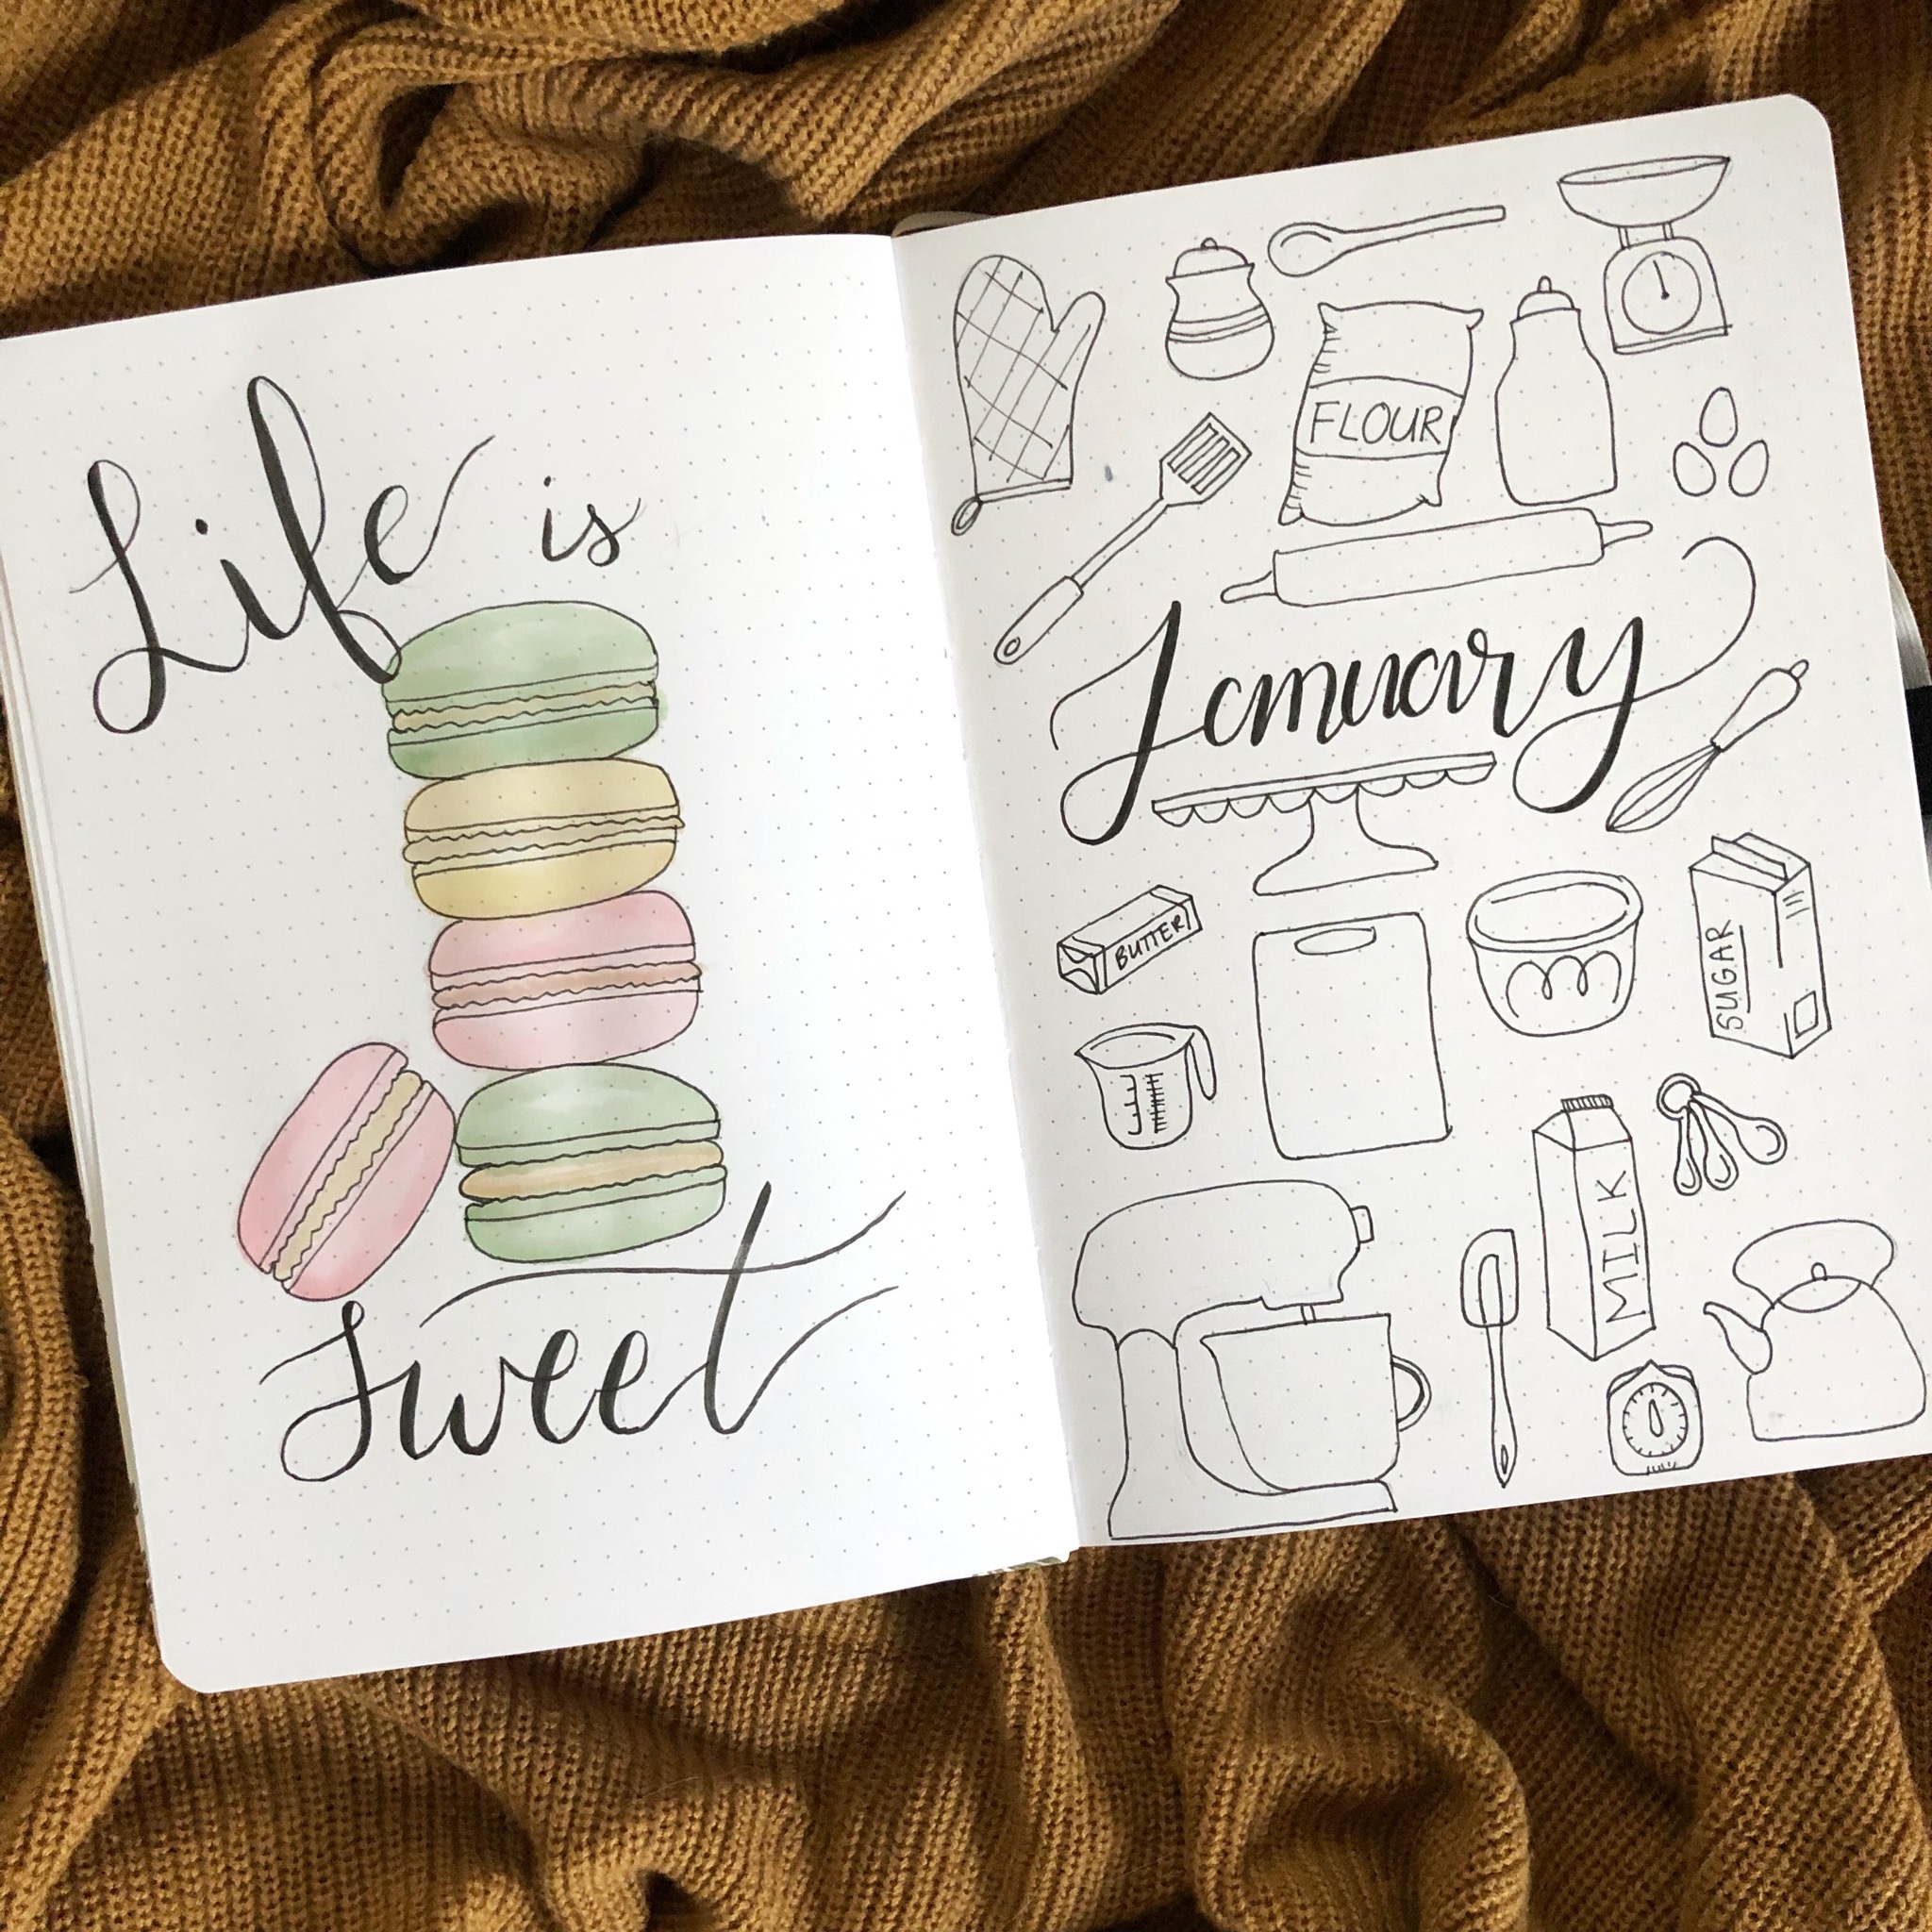 Life is
Sweet
FLOUR
January
BUTTER
SUGAR
MILK